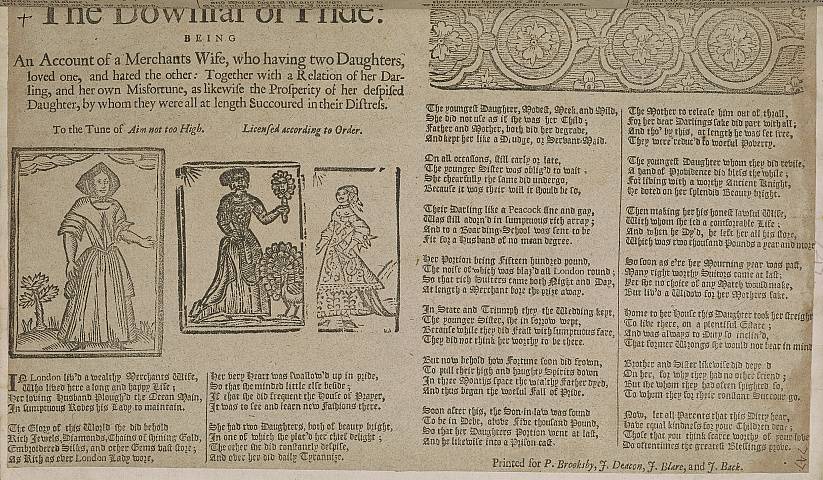 The Downfal of Pride:
BEING
An Account of a Merchants Wife, who having two Daughters,
loved one, and hated the other: Together with a Relation of her Dar-
ling, and her own Misfortune, as likewise the Prosperity of her despised
Daughter, by whom they were all at length Succoured in their Distress.
To the Tune of Aim not too High. Licensed according to Order.
IN London liv'd a wealthy Merchants Wife,
Who lived here a long and happy Life;
Her loving Husband Plough'd the Ocean Main,
In sumptuous Robes his Lady to maintain.
The Glory of this World she did behold
Rich Jewels, Diamonds, Chains of shining Gold,
Embroidered Silks, and other Gems vast store;
As Rich as ever London Lady wore,
Her very Heart was swallow'd up in pride,
So that she minded little else beside;
If that she did frequent the House of Prayer,
It was to see and learn new Fashions there.
She had two Daughters, both of beauty bright,
In one of which she plac'd her chief delight;
The other she did constantly despise,
And over her did daily Tyrannize.
The youngest Daughter, Modest, Meek, and Mild,
She did not use as if she was her Child;
Father and Mother, both did her degrade,
And kept her like a Drudge, or Servant-Maid.
On all occasions, still early or late,
The younger Sister was oblig'd to wait;
She chearfully the same did undergo,
Because it was their will it should be so,
Their Darling like a Peacock fine and gay,
Was still adorn'd in sumptuous rich array;
And to a Boarding-School was sent to be
Fit for a Husband of no mean degree.
Her Portion being Fifteen hundred pound,
The noise of which was blaz'd all London round;
So that rich Suitors came both Night and Day,
At length a Merchant bore the prize away.
In State and Triumph they the Wedding kept,
The younger Sister, she in sorrow wept,
Because while they did Feast with sumptuous fare,
They did not think her worthy to be there.
But now behold how Fortune soon did frown,
To pull their high and haughty Spirits down
In three Months space the wealthy Father dyed,
And thus began the woful Fall of Pride.
Soon after this, the Son-in-law was found
To be in Debt, above Five thousand Pound,
So that her Daughters Portion went at last,
And he likewise into a Prison cast.
The Mother to release him out of thrall,
For her dear Darlings sake did part with all;
And tho' by this, at length he was set free,
They were reduc'd to woful Poverty.
The youngest Daughter whom they did revile,
A hand of Providence did bless the while;
For living with a worthy Ancient Knight,
He doted on her splendid Beauty bright.
Then making her his honest lawful Wife,
With whom she led a comfortable Life;
And when he Dy'd, he left her all his store,
Which was two thousand Pounds a year and more
So soon as e're her Mourning year was past,
Many right worthy Suitors came at last;
Yet she no choice of any Match would make,
But liv'd a Widow for her Mothers sake.
Home to her House this Daughter took her streight
To live there, on a plentiful Estate;
And was always to Duty so inclin'd,
That former Wrongs she would not bear in mind
Brother and Sister likewise did depend
On her, for why they had no other friend;
But she whom they had often spighted so,
To whom they for their constant Succour go.
Now, let all Parents that this Ditty hear,
Have equal kindness for your Children dear;
Those that you think scarce worthy of your love
Do oftentimes the greatest Blessings prove.
Printed for P. Brooksby, J. Deacon, J. Blare, and J. Back.
247